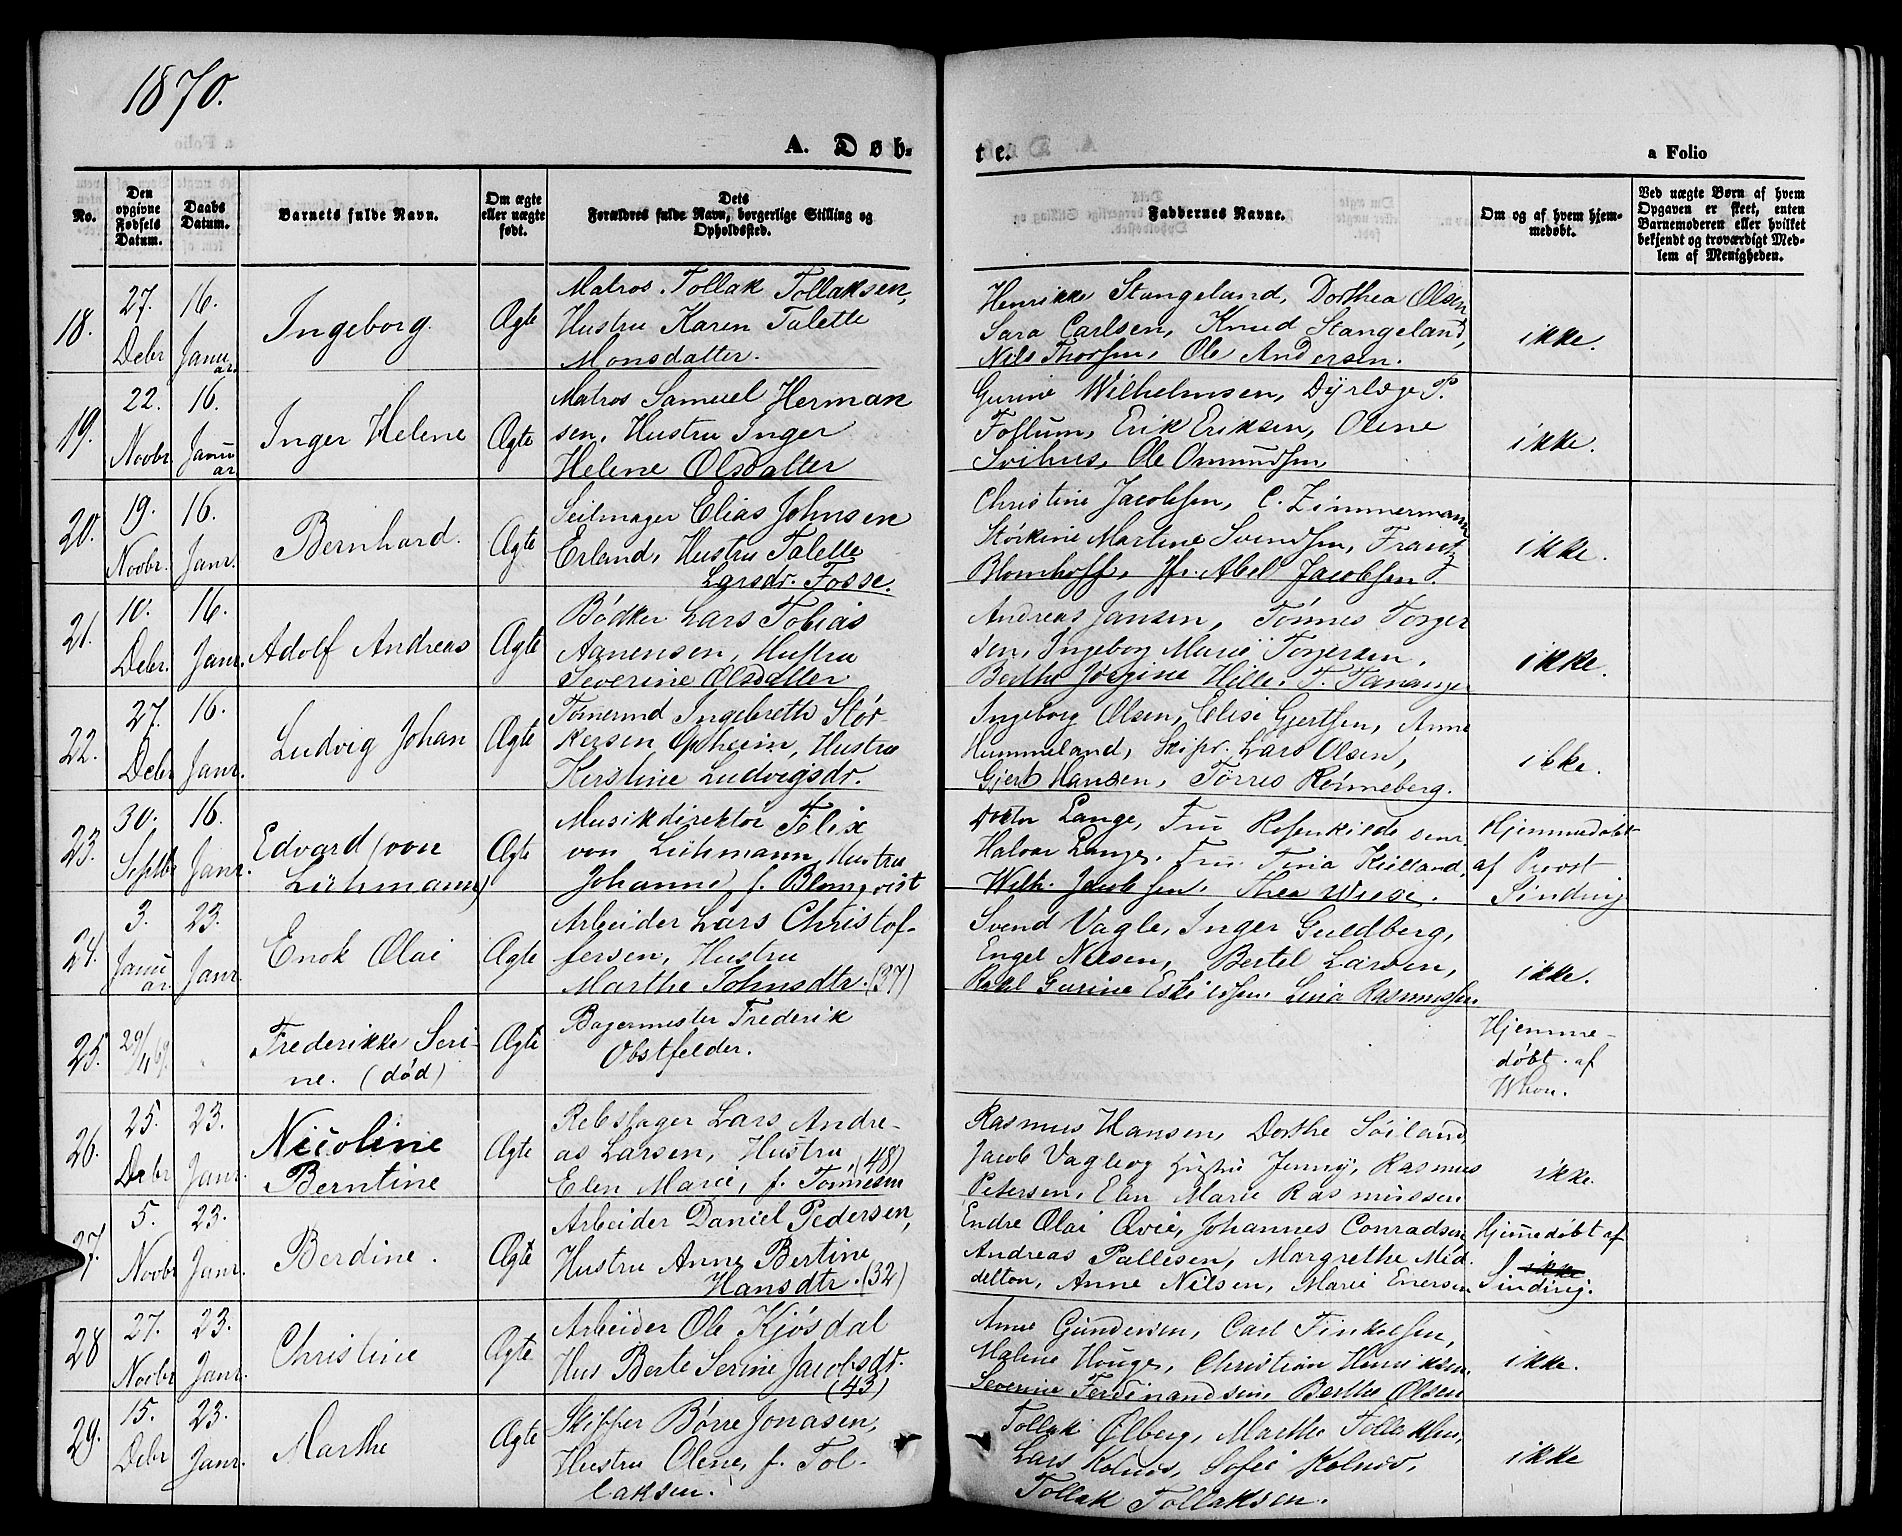 1870.
A. Døb-
te.
a Folio
No.
Den opgivne Fødsels Datum.
Daabs Datum.
Barnets fulde Navn.
Om ægte eller uægte født.
Dets Forældres fulde Navn, borgerlige Stilling og Opholdssted.
Faddernes Navne.
Om og af hvem hjemmedøbt.
Ved uægte Børn af hvem
Opgaven er skeet, enten
Barnemoderen eller hvilket
bekjendt og troværdigt Med-
lem af Menigheden.
18.
27. Debr
16. Januar.
Ingeborg.
Ægte
Matros Tollak Tollaksen,
Hustru Karen Talette
Monsdatter.
Henrikke Stangeland, Dorthea Olsen
Sara Carlsen, Knud Stangeland,
Nils Thorsen, Ole Andersen.
ikke.
19.
22. Novbr
16. Januar
Inger Helene
Ægte
Matros Samuel Herman
sen, Hustru Inger
Helene Olsdatter
Gurine Wilhelmsen, Dyrlæge P.
Follum, Erik Eriksen, Olene
Svihus, Ole Omundsen
ikke.
20.
19. Novbr.
16. Janr.
Bernhard.
Ægte
Seilmager Elias Johnsen
Erland, Hustru Talette
Larsdr. Fosse.
Christine Jacobsen, C. Zimmermann
Størkine Martine Svendsen, Frantz
Blomhoff, Jfr. Abel Jacobsen.
ikke.
21.
10. Debr.
16. Janr.
Adolf Andreas
Ægte
Bødker Lars Tobias
Aanensen, Hustru
Severine Olsdatter
Andreas Jansen, Tønnes Torger
sen, Ingeborg Marie Torgersen,
Berthe Jørgine Hille, T. Tananger
ikke.
22.
27. Debr
16. Janr.
Ludvig Johan
Ægte
Tømermd Ingebreth Stør-
kersen Opheim, Hustru
Kerstine Ludvigsdr.
Ingeborg Olsen, Elise Gjertsen, Anne
Hummeland, Skipr. Lars Olsen,
Gjert Hansen, Tørres Rønneberg.
ikke.
23.
30. Septbr
16. Janr.
Edvard (von
Lühmann)
Ægte
Musikdirektør Felix
von Lühmann, Hustru
Johanne f. Blomqvist
Doktor Lange, Fru Rosenkilde senr
Halvor Lange, Fru Tina Kielland,
Wilh. Jacobsen, Thea Wiese.
Hjemmedøbt
af Provst
Sinding
24.
3. Januar
23. Janr.
Enok Olai
Ægte
Arbeider Lars Christof-
fersen, Hustru
Marthe Johnsdtr. (37)
Svend Vagle, Inger Guldberg,
Engel Nilsen, Bertel Larsen,
Rakl Gurine Eskildsen, Lina Rasmussen
ikke.
25.
29/11 69.
Frederikke Seri-
ne. (død)
Ægte
Bagermester Frederik
Obstfelder.
Hjemme-
døbt af
Whon.
26.
25. Debr
23. Janr.
Nicoline
Berntine
Ægte
Rebslager Lars Andre-
as Larsen, Hustru (48)
Elen Marie, f. Tønnesen
Rasmus Hansen, Dorthe Soiland
Jacob Vagle og Hustru Jenny, Rasmus
Petersen, Elen Marie Rasmussen
ikke.
27.
5. Novbr
23. Janr.
Berdine.
Ægte
Arbeider Daniel Pedersen,
Hustru Anne Bertine
Hansdtr. (32)
Endre Olai Qvie, Johannes Conradsen
Andreas Pallesen, Margrethe Mid-
delton, Anne Nilsen, Marie Enersen
Hjemedøbt af
ikke
Sinding.
28
27. Novbr
23. Janr.
Christine
Ægte
Arbeider Ole Kjøsdal
Hus Berte Serine Jacobsdr.
(43)
Anne Gundersen, Carl Finkelsen,
Malene Houge, Christian Henriksen
Severine Ferdinandsen, Berthe Olsen
ikke.
29.
15. Debr
23. Janr.
Marthe
Ægte
Skipper Børre Jonasen,
Hustru Olene, f. Tol-
laksen.
Tollak Ølberg, Marthe Tollaksen,
Lars Kolnæs, Sofie Kolnæs,
Tollak Tollaksen.
ikke